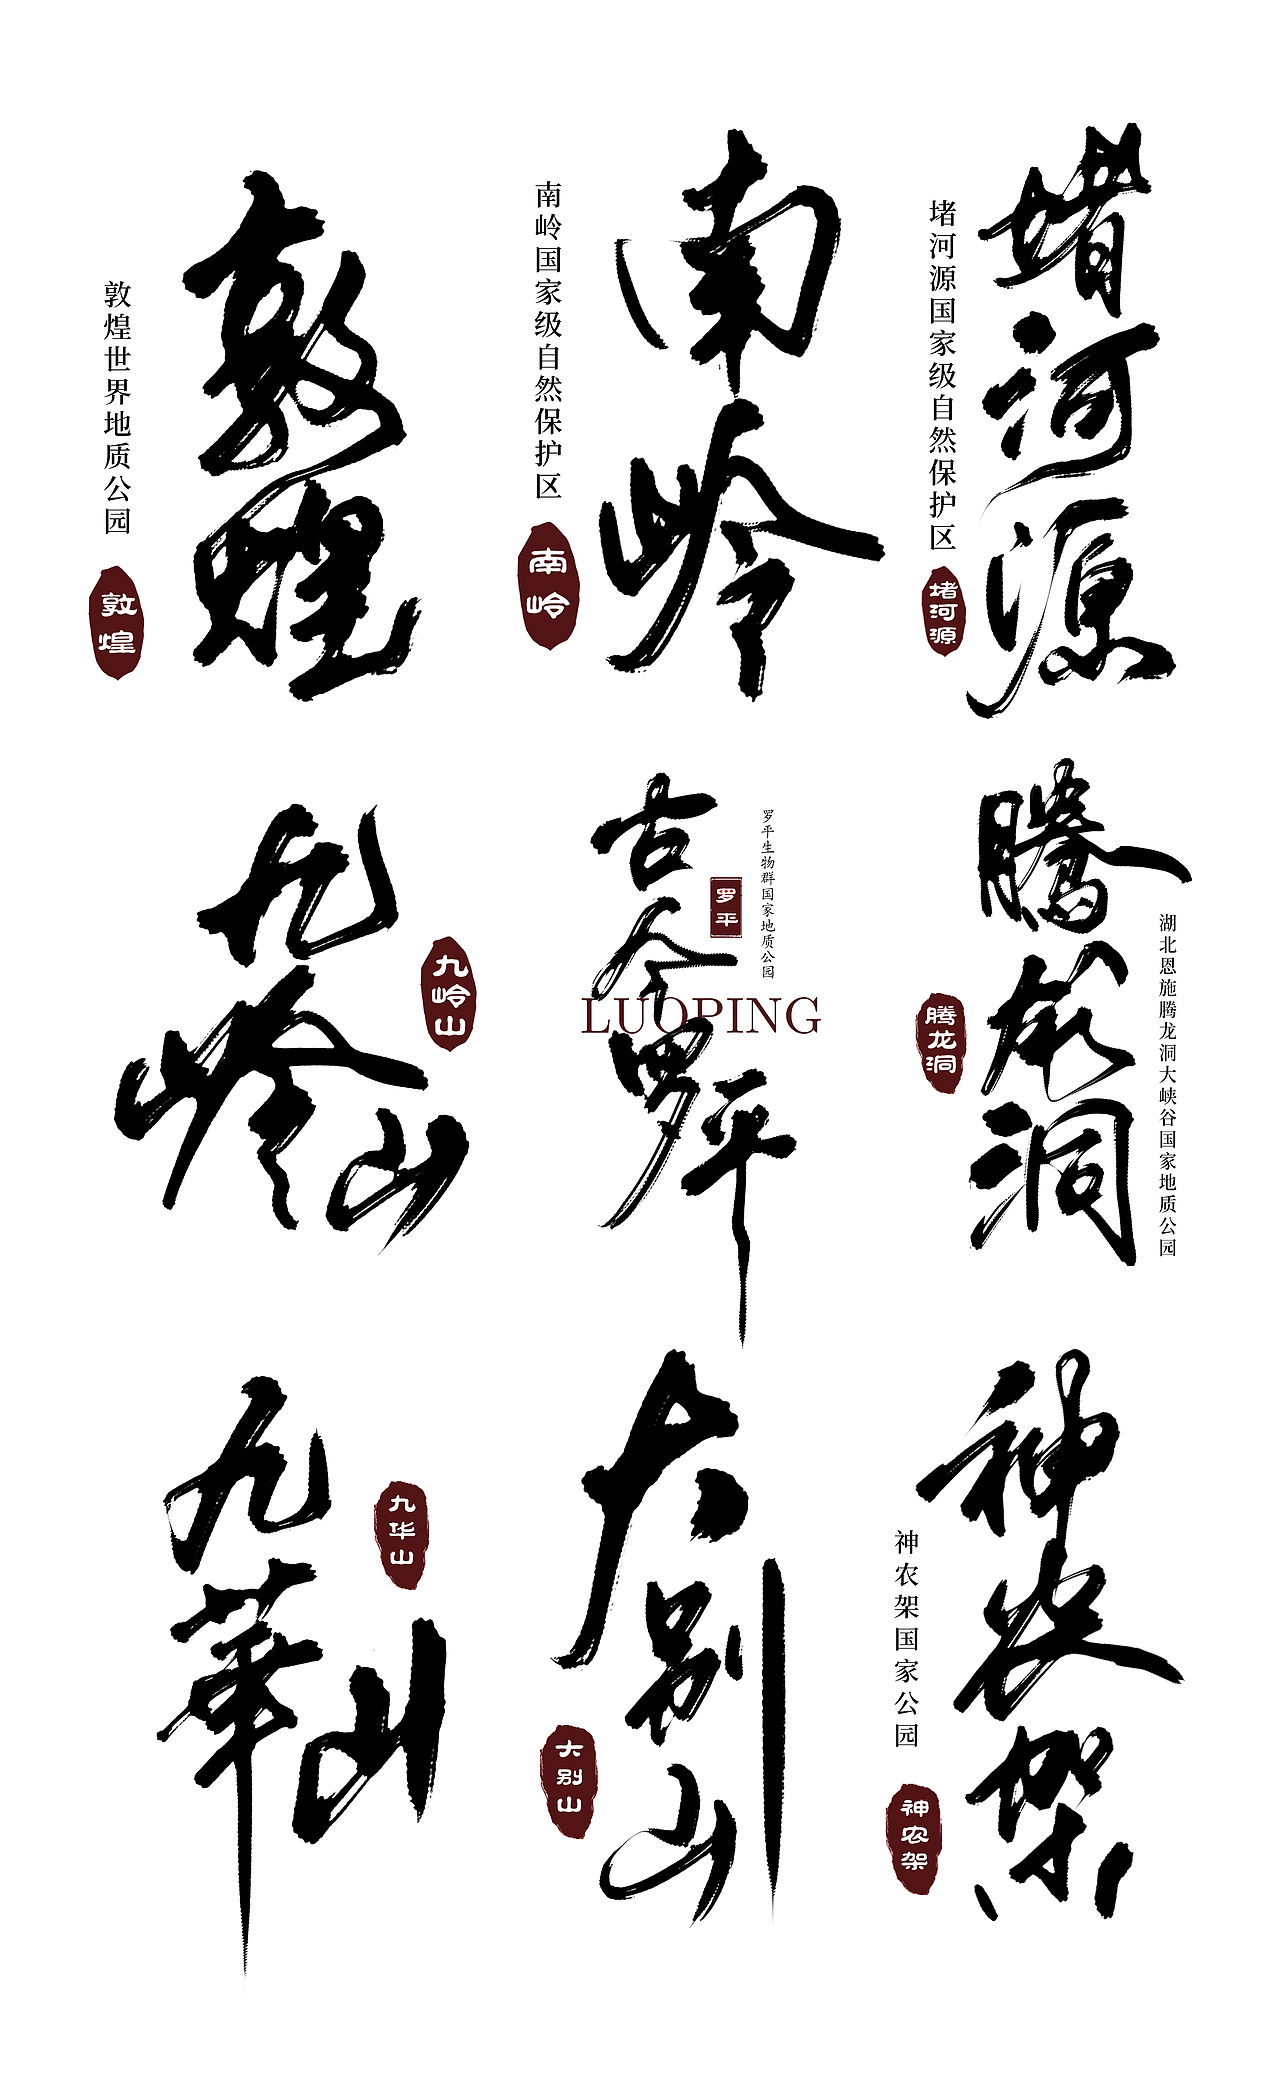 敦煌世界地质公园
敦煌
敦煌
南岭国家级自然保护区
南岭
南岭
堵河源国家级自然保护区
堵河源
堵河源
九岭山
九岭山
古今罗平
罗平
罗平生物群国家地质公园
LUOPING
腾龙洞
腾龙洞
湖北恩施腾龙洞大峡谷国家地质公园
九華山
九华山
大别山
大别山
神农架国家公园
神农架
神农架